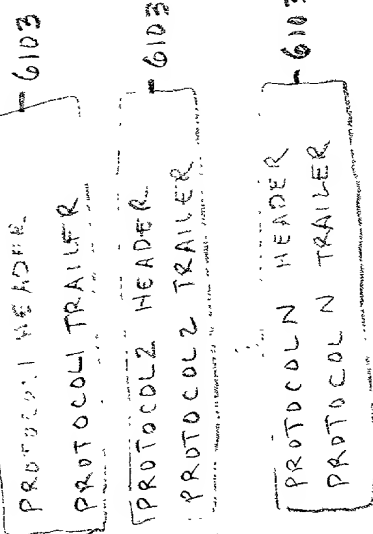 PROTOCOL1 HEADER
PROTOCOL1 TRAILER
6103
PROTOCOL2 HEADER
PROTOCOL2 TRAILER
6103
PROTOCOL N HEADER
PROTOCOL N TRAILER
6103